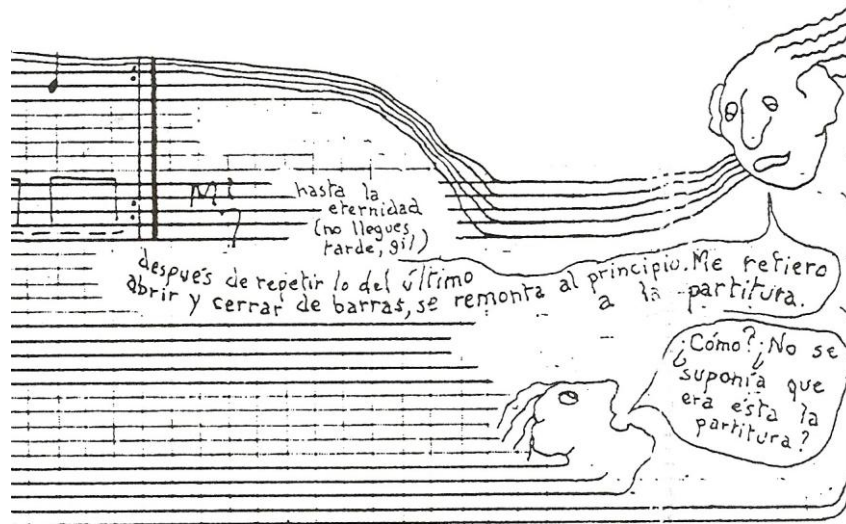 Mi
hasta la
eternidad
(no llegues
tarde, gil)
después de repetir lo del último
abrir y cerrar de barras, se remonta al principio. Me refiero
a la partitura.
¿Cómo? ¿No se
suponía que
era ésta la
partitura?